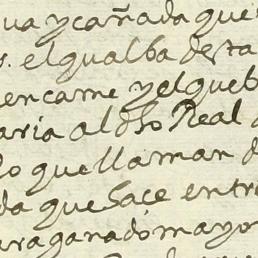 ua y cañada que
el qual ba desta
encame y el queb
aria al dho Real
lo que llaman d
da que hace entre
para ganado mayor